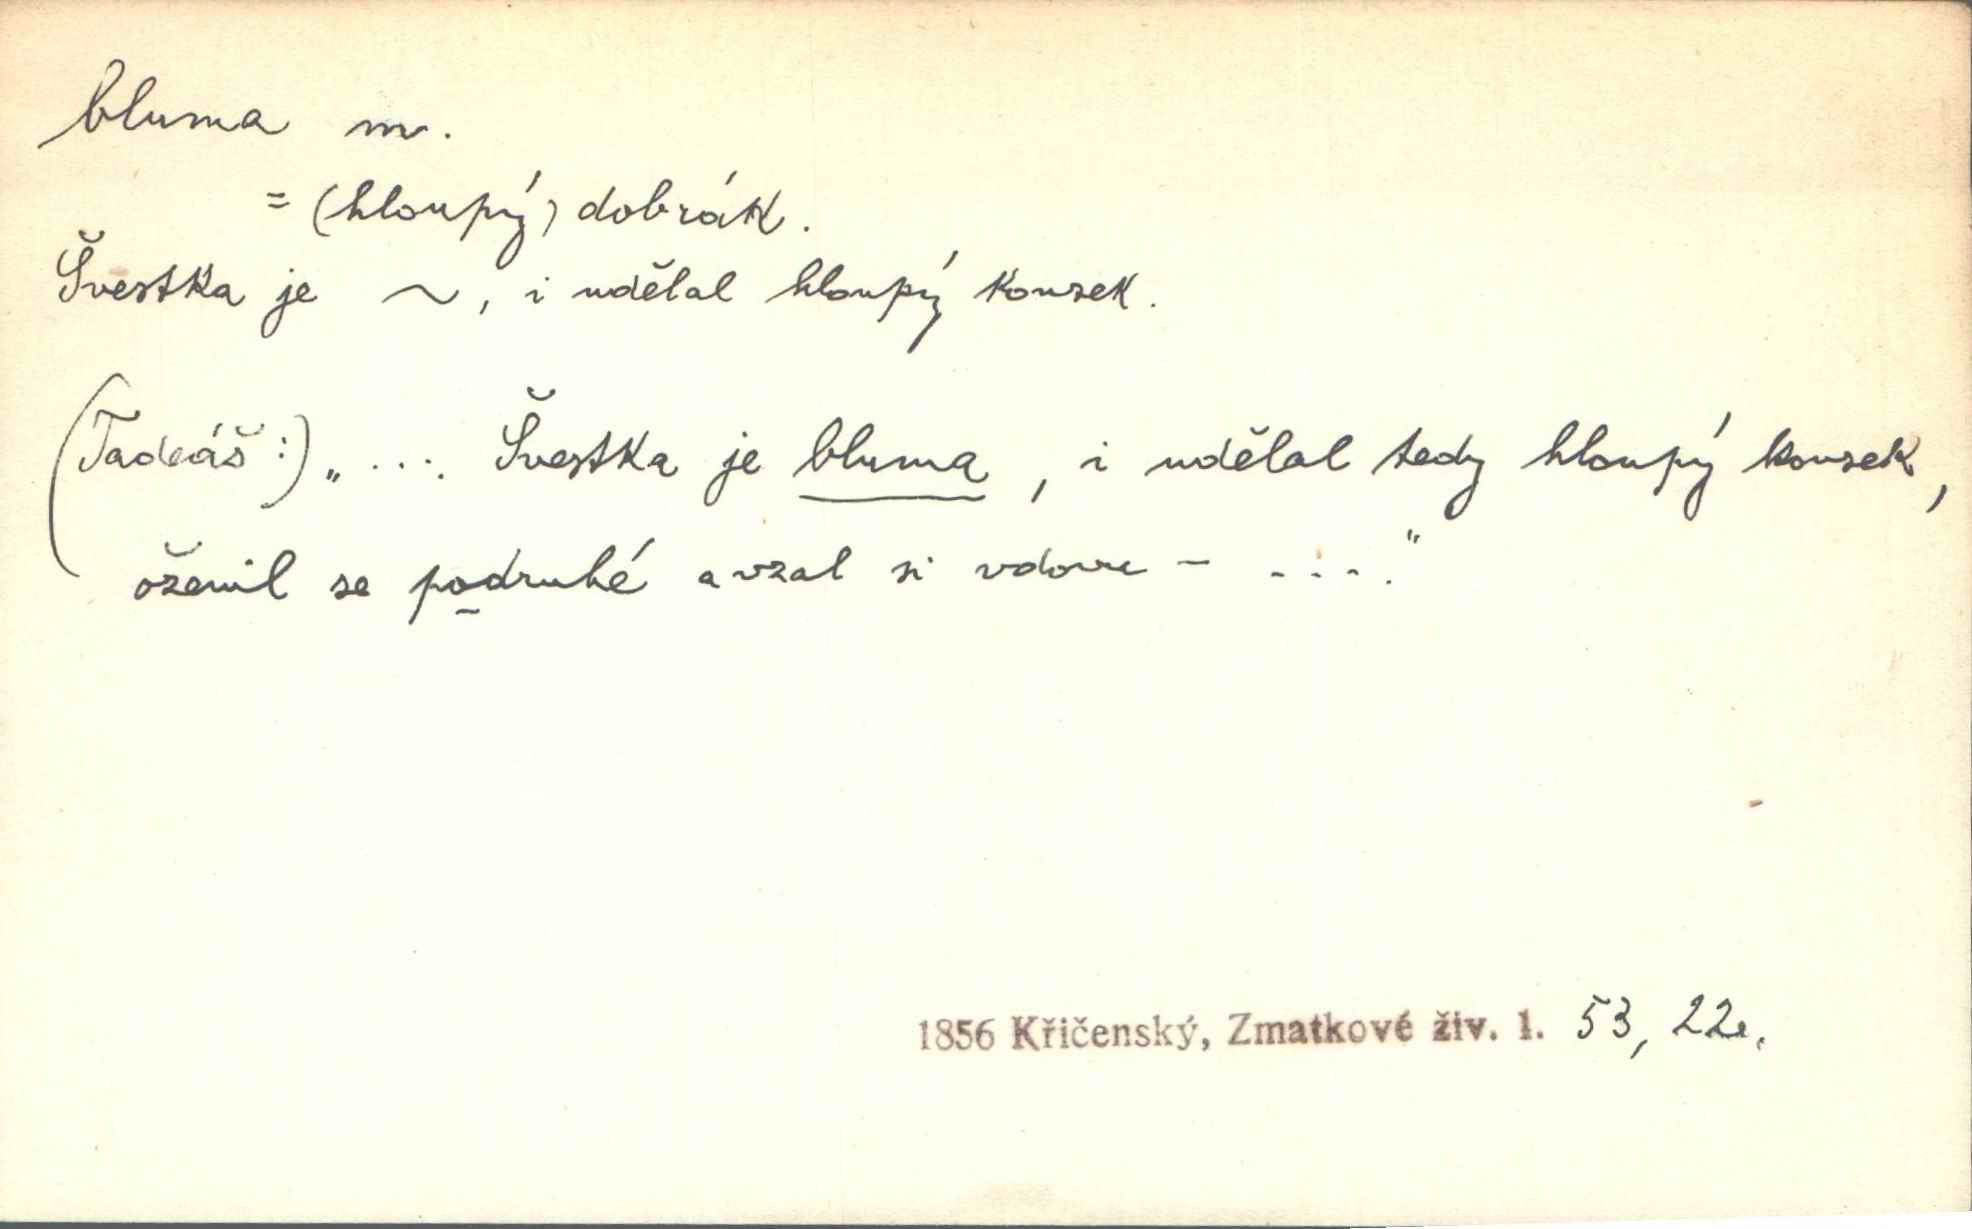 bluma m.
= (hloupý) dobrák.
Švestka je ~, i udělal hloupý kousek.
(Tadeáš:) „ .... Švestka je bluma, i udělal tedy hloupý kousek,
oženil se podruhé a vzal si vdovu - ...."
1856 Křičenský, Zmatkové živ. 1. 53, 22.